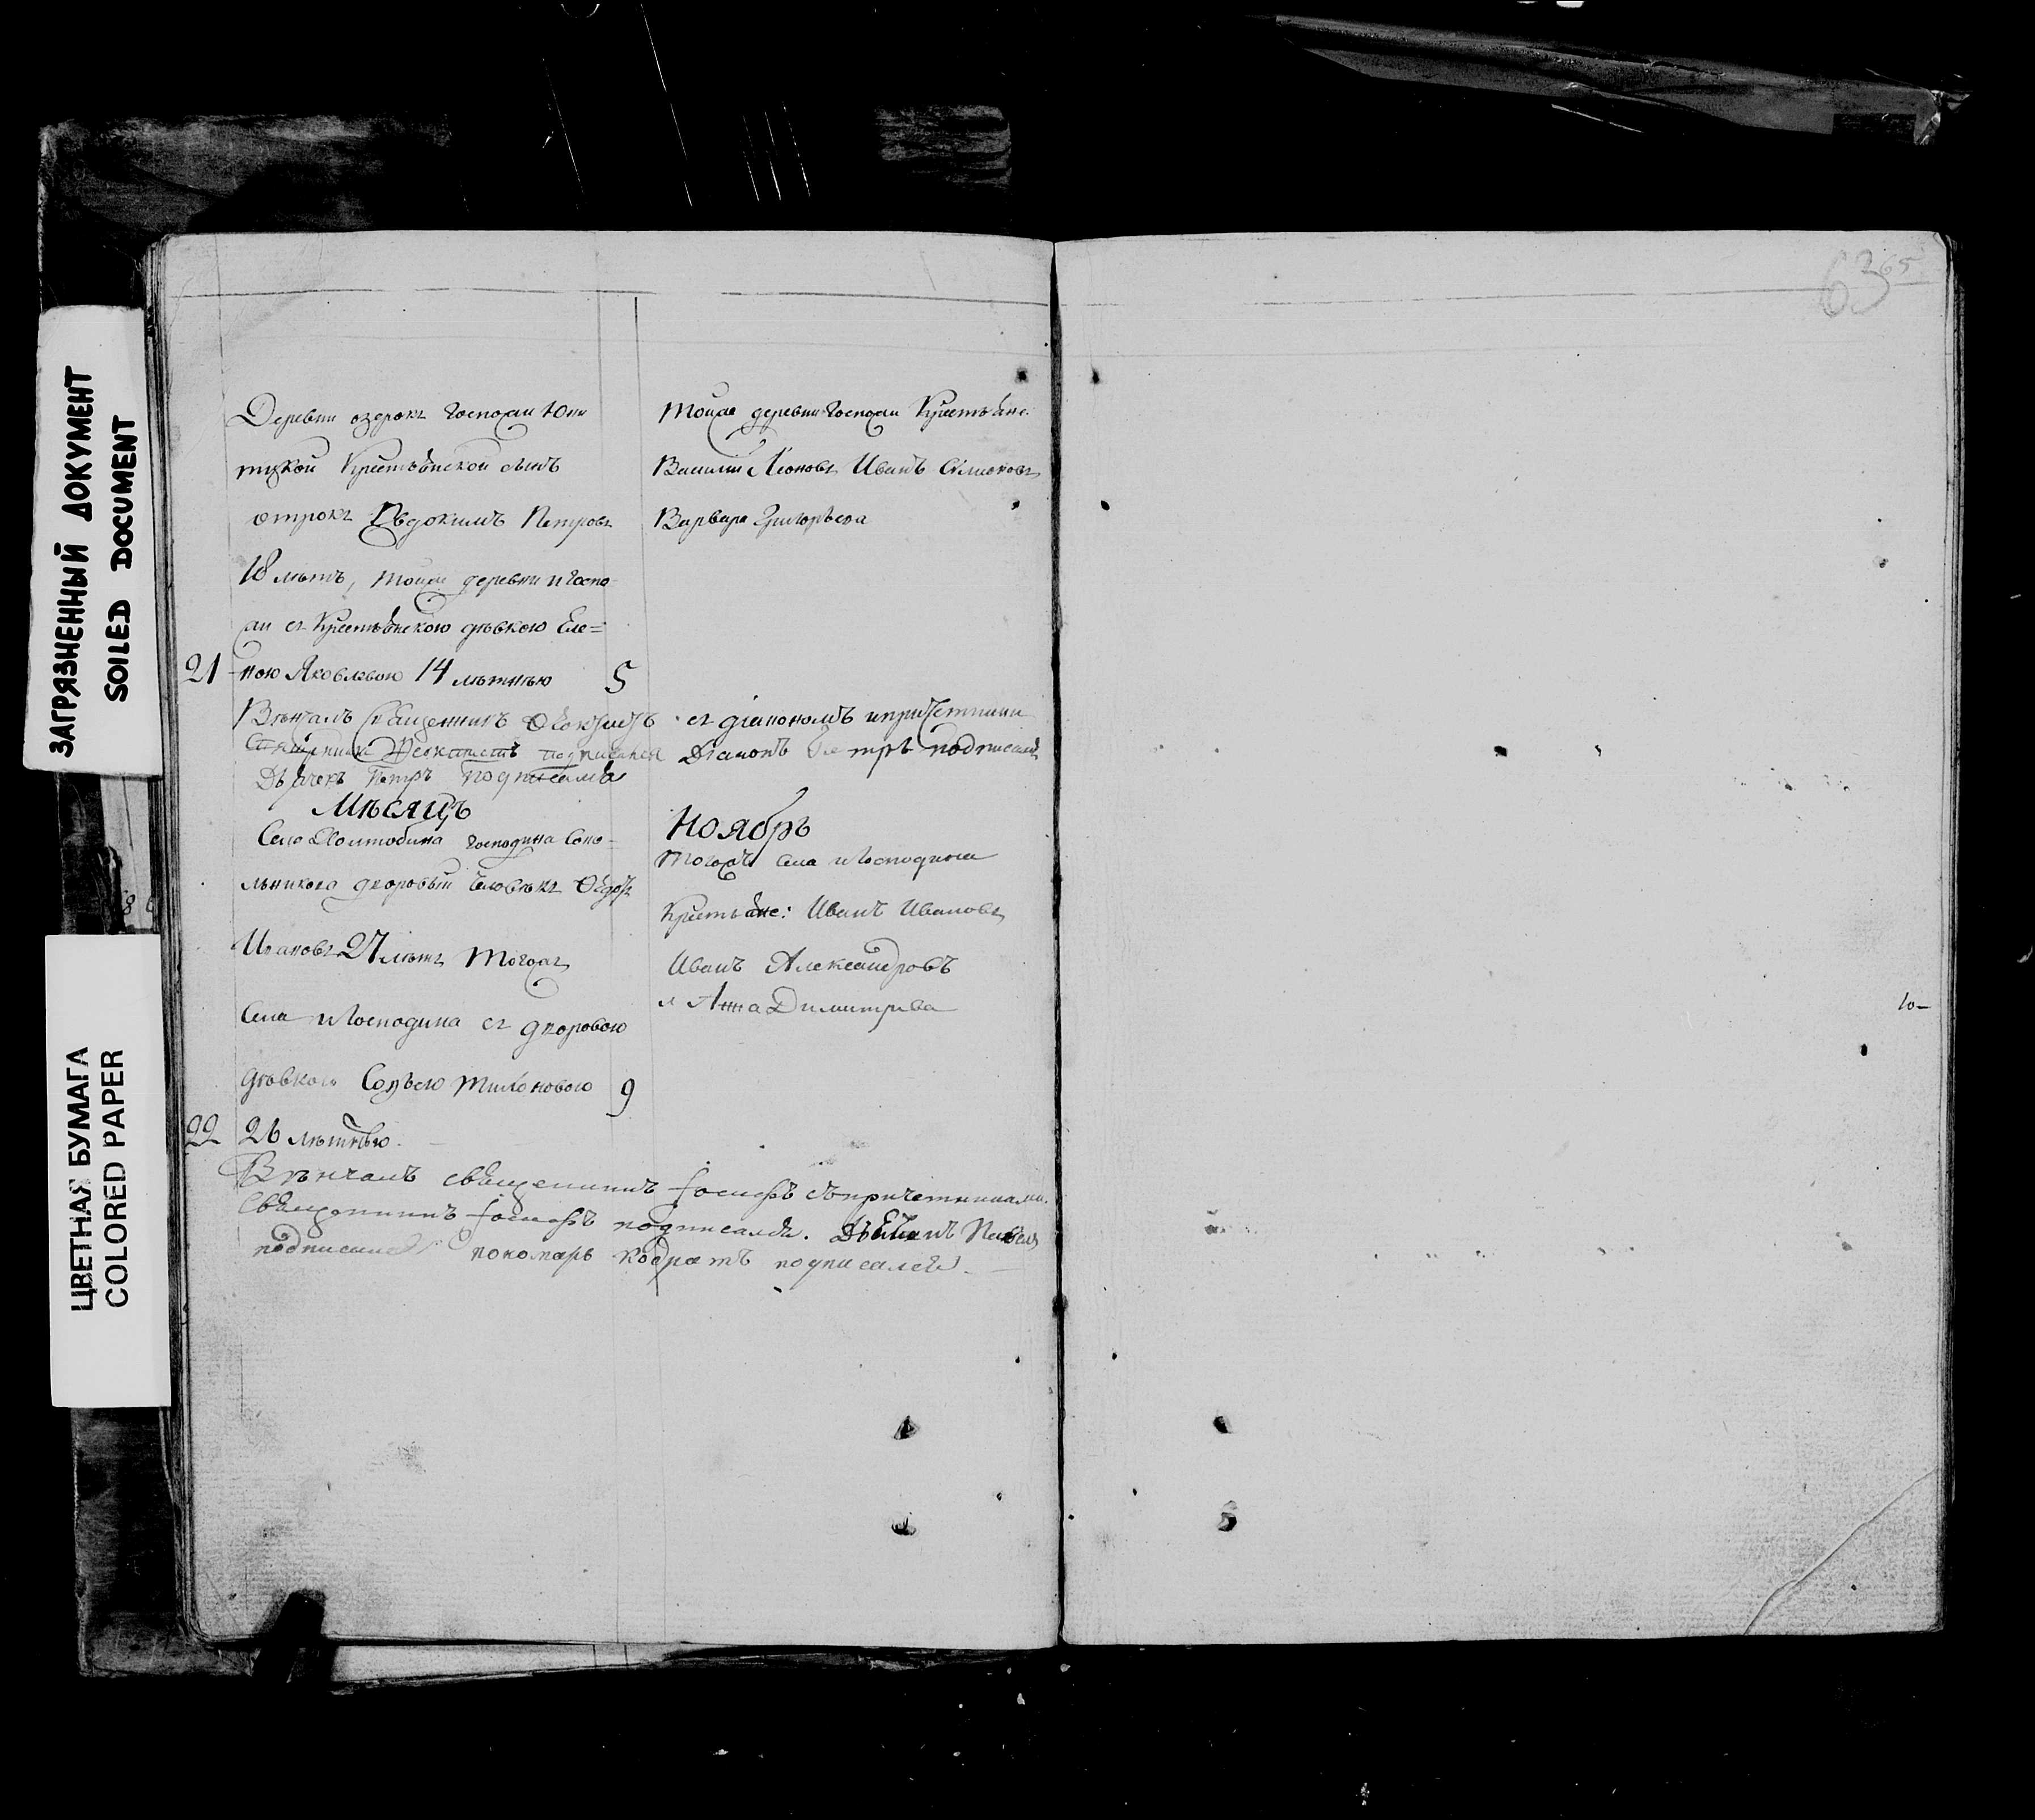 ЗАГРЯЗНЕННЫЙ ДОКУМЕНТ
SOILED DOCUMENT
ЦВЕТНАЯ БУМАГА
COLORED PAPER
63 65
Деревни озерокъ Госпожи Юни
тцкой Крестьянской сынъ
отрокъ Евдокимъ Петровъ
18 лѣтъ, тойже деревни и Госпо-
жи съ Крестьянскою дѣвкою Еле=
21 ною Яковлевою 14 лѣтнею 5
тойже деревни Госпожи Крестьяне:
Василий Леоновъ Иванъ Симионовъ
Варвара Григорьева
Вѣнчалъ Священникъ Феоктистъ съ діакономъ и причетники
Священникъ Феоктистъ подписался Діаконъ Петръ подписался
Дьячекъ Петръ подписался
Мѣсяцъ Ноябрь
Села господина Соко-
льникова дворовый человѣкъ Федоръ
Ивановъ 27 лѣтъ тогожъ
Села и Господина съ дворовою
дѣвкою Софьею Тихоновою 9
22 26 лѣтнею.
тогожъ села и Господина
Крестьяне: Иванъ Ивановъ
Иванъ Александровъ
и Анна Димитриева
Вѣнчалъ священникъ Іосифъ съ причетниками.
Священникъ Іосифъ подписался. Павелъ
подписался пономарь Кодратъ подписался
10-